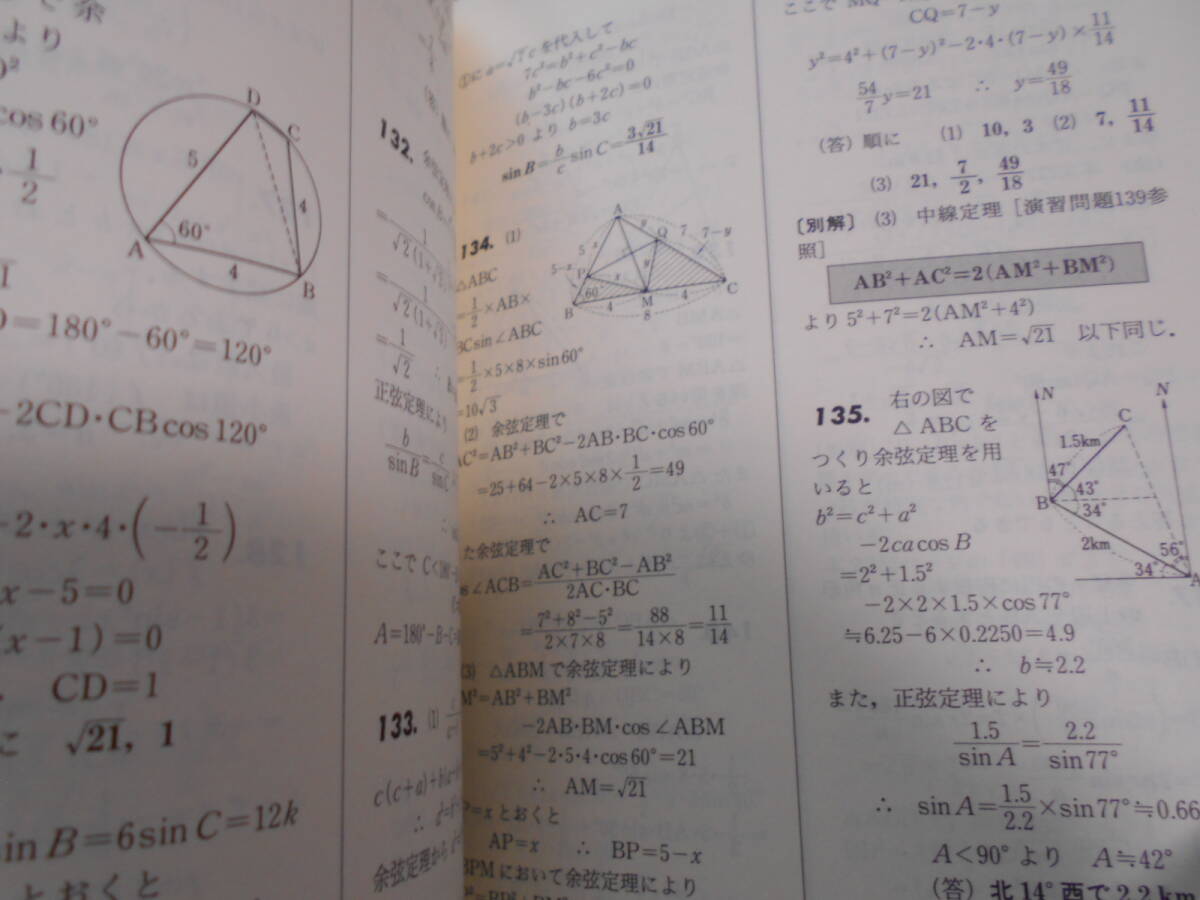 より
cos 60°
1/2
D
C
5
4
60°
A
4
B
=180°−60°=120°
−2CD・CB cos 120°
−2・x・4・(−1/2)
x−5=0
(x−1)=0
CD=1
√21, 1
sin B=6 sin C=12k
とおくと
132.
余弦定
=1/√2
正弦定理により
b/sin B=
ここで
A=180°−B−C=
133. (1)
c(c+a)+b(a
余弦定理から
①に a=√7 c を代入して
7c²=b²+c²−bc
b²−bc−6c²=0
(b−3c)(b+2c)=0
b+2c>0 より b=3c
sin B=b/c sin C=3√21/14
134. (1)
△ABC
=1/2×AB×
BC sin∠ABC
=1/2×5×8×sin60°
=10√3
A
y
7
7−y
Q
5
x
5−x
P
x
y
60°
B
4
M
4
C
8
(2) 余弦定理で
AC²=AB²+BC²−2AB・BC・cos 60°
=25+64−2×5×8×1/2=49
∴ AC=7
た余弦定理で
∠ACB=AC²+BC²−AB²/2AC・BC
=7²+8²−5²/2×7×8=88/14×8=11/14
(3) △ABMで余弦定理により
M²=AB²+BM²
−2AB・BM・cos∠ABM
=5²+4²−2・5・4・cos 60°=21
∴ AM=√21
=x とおくと
AP=x ∴ BP=5−x
BPMにおいて余弦定理により
ここで
CQ=7−y
y²=4²+(7−y)²−2・4・(7−y)×11/14
54/7 y=21 ∴ y=49/18
(答) 順に (1) 10, 3 (2) 7, 11/14
(3) 21, 7/2, 49/18
[別解] (3) 中線定理 [演習問題139参
照]
AB²+AC²=2(AM²+BM²)
より 5²+7²=2(AM²+4²)
∴ AM=√21 以下同じ.
135. 右の図で
△ABCを
つくり余弦定理を用
いると
b²=c²+a²
−2ca cos B
=2²+1.5²
−2×2×1.5×cos 77°
≒6.25−6×0.2250=4.9
∴ b≒2.2
N
N
C
1.5km
47°
43°
B
34°
2km
56°
34°
A
また, 正弦定理により
1.5/sin A=2.2/sin 77°
∴ sin A=1.5/2.2×sin 77°≒0.66
A<90° より A≒42°
(答) 北14°西で2.2 km